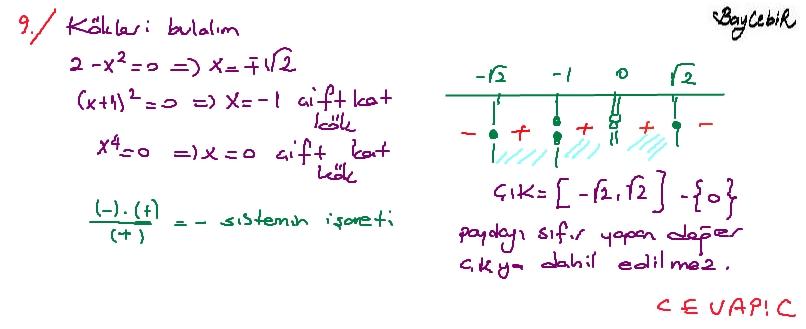 BayCebir
9./ Kökleri bulalım
2 - x² = 0 => x = ∓√2
(x+1)² = 0 => x = -1 çift kat kök
x⁴ = 0 => x = 0 çift kat kök
(-).(+) / (+) = - sistemin işareti
-√2 -1 0 √2
- + + + -
ÇK = [-√2, √2] - {0}
paydayı sıfır yapan değer
ÇK ya dahil edilmez.
CEVAP: C